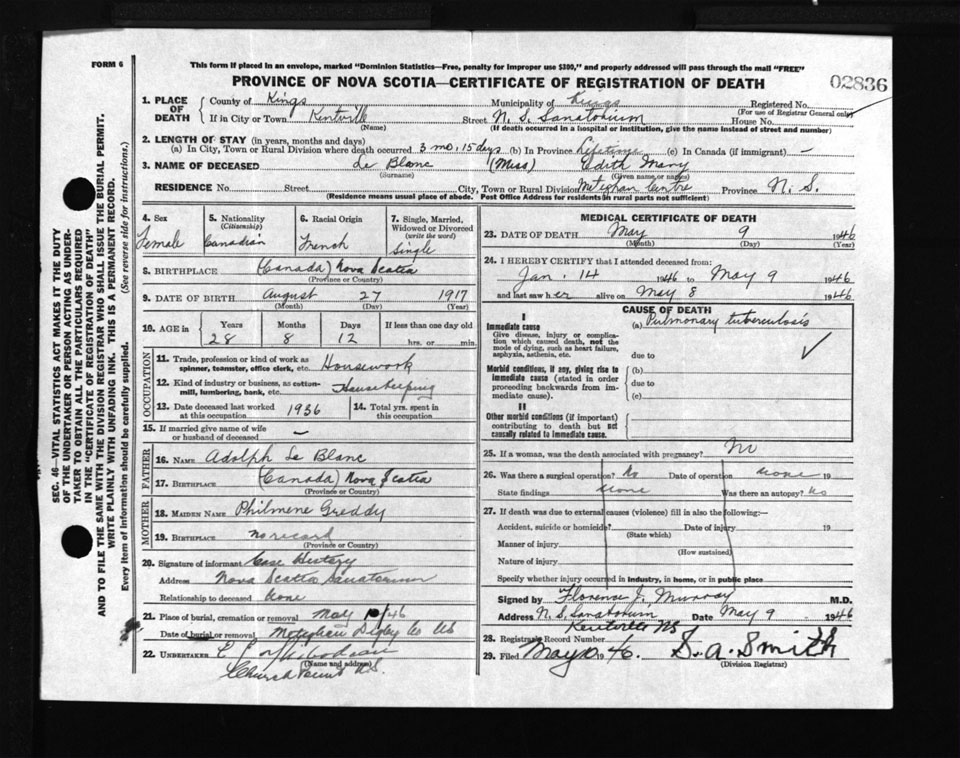 FORM 6
This form if placed in an envelope, marked "Dominion Statistics—Free, penalty for improper use $300," and properly addressed will pass through the mail "FREE"
PROVINCE OF NOVA SCOTIA—CERTIFICATE OF REGISTRATION OF DEATH
02836
1. PLACE OF DEATH
County of Kings Municipality of Kings Registered No.
(For use of Registrar General only)
If in City or Town Kentville Street N. S. Sanatorium House No.
(Name) (If death occurred in a hospital or institution, give the name instead of street and number)
2. LENGTH OF STAY (in years, months and days)
(a) In City, Town or Rural Division where death occurred 3 mo, 15 days (b) In Province Lifetime (c) In Canada (if immigrant) —
3. NAME OF DECEASED Le Blanc (Miss) Edith Mary
(Surname) (Given name or names)
RESIDENCE No. Street City, Town or Rural Division Meteghan Centre Province N. S.
(Residence means usual place of abode. Post Office Address for residents in rural parts not sufficient)
4. Sex
Female
5. Nationality
(Citizenship)
Canadian
6. Racial Origin
French
7. Single, Married, Widowed or Divorced
(write the word)
Single
8. BIRTHPLACE (Canada) Nova Scotia
(Province or Country)
9. DATE OF BIRTH August 27 1917
(Month) (Day) (Year)
10. AGE in Years Months Days If less than one day old
28 8 12 hrs. or min.
OCCUPATION
11. Trade, profession or kind of work as
spinner, teamster, office clerk, etc. Housework
12. Kind of industry or business, as cotton-
mill, lumbering, bank, etc. Housekeeping
13. Date deceased last worked
at this occupation 1936
14. Total yrs. spent in
this occupation
15. If married give name of wife
or husband of deceased —
FATHER
16. NAME Adolph Le Blanc
17. BIRTHPLACE (Canada) Nova Scotia
(Province or Country)
MOTHER
18. MAIDEN NAME Philmene Greddy
19. BIRTHPLACE no record
(Province or Country)
20. Signature of informant Case History
Address Nova Scotia Sanatorium
Relationship to deceased none
21. Place of burial, cremation or removal May 10/46
Date of burial or removal Meteghan Digby Co NS
22. UNDERTAKER
(Name and address)
Church Point N.S.
MEDICAL CERTIFICATE OF DEATH
23. DATE OF DEATH May 9 1946
(Month) (Day) (Year)
24. I HEREBY CERTIFY that I attended deceased from:
Jan. 14 1946 to May 9 1946
and last saw her alive on May 8 1946
CAUSE OF DEATH
I
Immediate cause (a) Pulmonary tuberculosis
Give disease, injury or complica-
tion which caused death, not the
mode of dying, such as heart failure,
asphyxia, asthenia, etc.
due to
Morbid conditions, if any, giving rise to
immediate cause (stated in order
proceeding backwards from im-
mediate cause).
(b)
due to
(c)
II
Other morbid conditions (if important)
contributing to death but not
causally related to immediate cause.
25. If a woman, was the death associated with pregnancy? No
26. Was there a surgical operation? No Date of operation none 19
State findings none Was there an autopsy? No
27. If death was due to external causes (violence) fill in also the following:—
Accident, suicide or homicide? Date of injury 19
(State which)
Manner of injury
(How sustained)
Nature of injury
Specify whether injury occurred in industry, in home, or in public place
Signed by Florence J. Murray M.D.
Address N. S. Sanatorium Date May 9 1946
Kentville NS
28. Registrar's Record Number
29. Filed May 10 1946. S. A. Smith
(Division Registrar)
SEC. 46—VITAL STATISTICS ACT MAKES IT THE DUTY
OF THE UNDERTAKER OR PERSON ACTING AS UNDER-
TAKER TO OBTAIN ALL THE PARTICULARS REQUIRED
IN THE "CERTIFICATE OF REGISTRATION OF DEATH"
AND TO FILE THE SAME WITH THE DIVISION REGISTRAR WHO SHALL ISSUE THE BURIAL PERMIT.
WRITE PLAINLY WITH UNFADING INK. THIS IS A PERMANENT RECORD.
Every item of information should be carefully supplied. (See reverse side for instructions.)